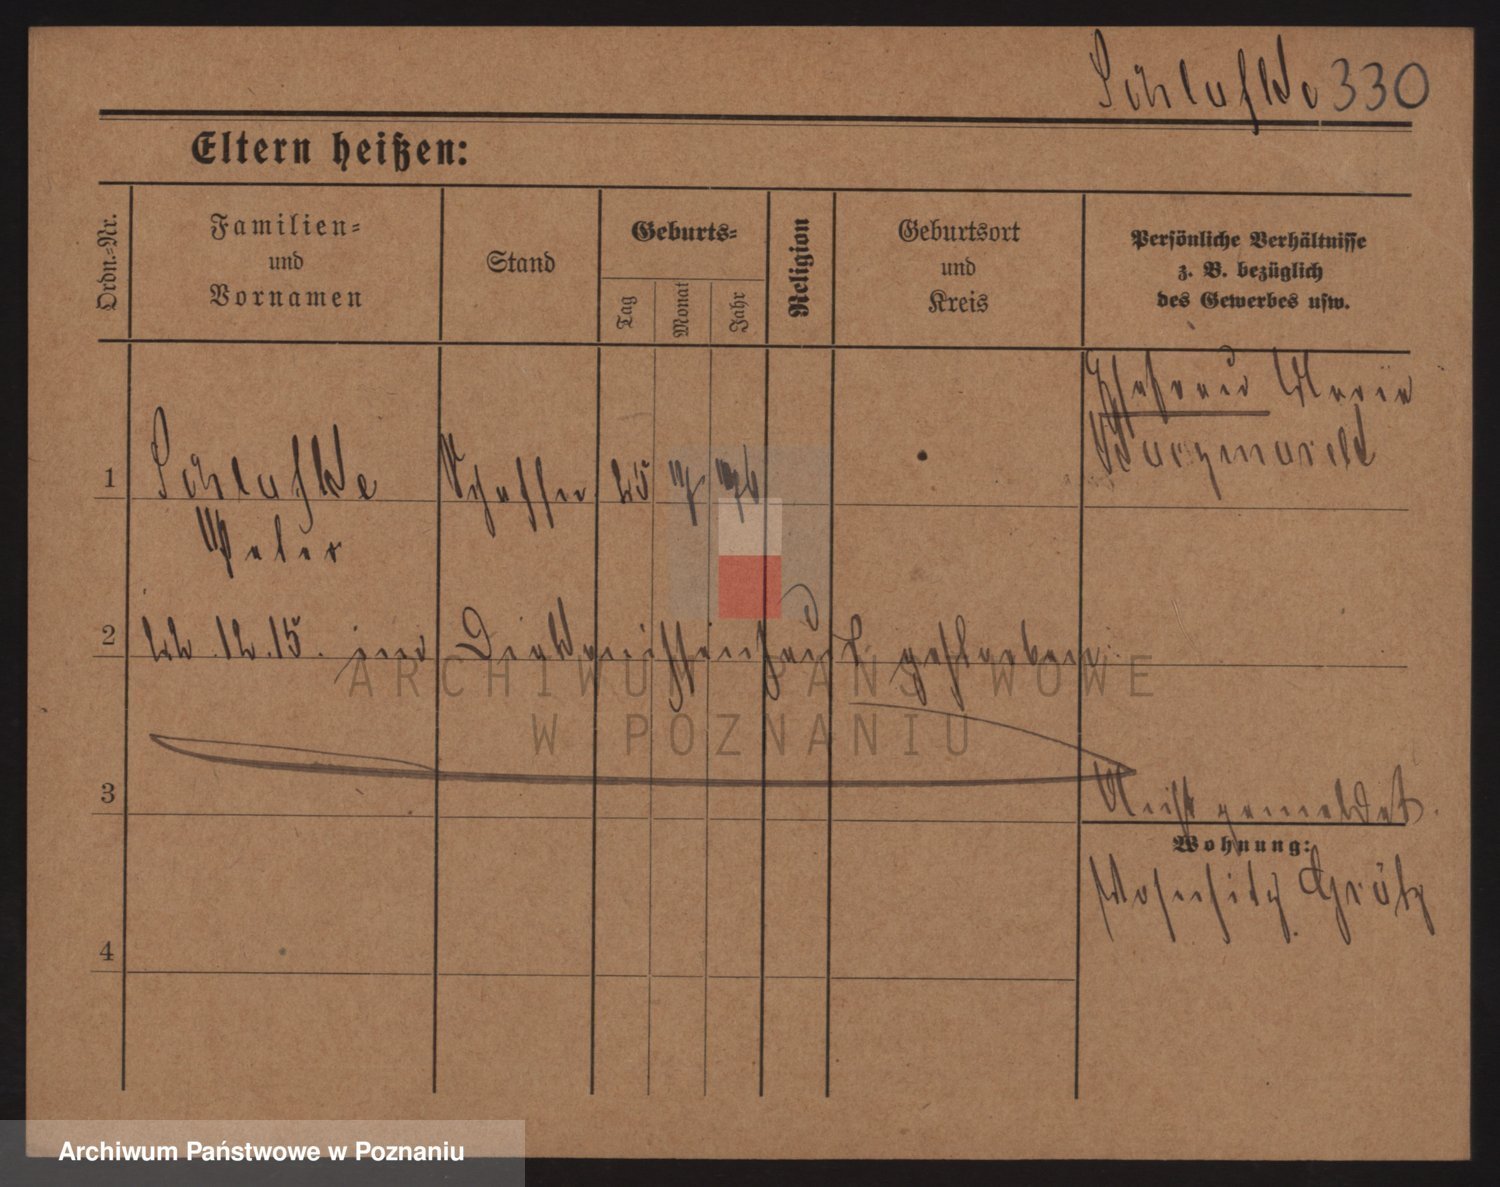 Schlafke 330
Eltern heißen:
Ordn.-Nr.
Familien-
und
Vornamen
Stand
Geburts-
Tag
Monat
Jahr
Religion
Geburtsort
und
Kreis
Persönliche Verhältnisse
z. B. bezüglich
des Gewerbes usw.
Ehefrau Marie
1
Schlafke
Peter
Schaffer
25
2
22.12.15. im Diakonissenhaus gestorben.
3
Nicht gemeldet.
Wohnung:
Grätz
4
ARCHIWUM PAŃSTWOWE
W POZNANIU
Archiwum Państwowe w Poznaniu